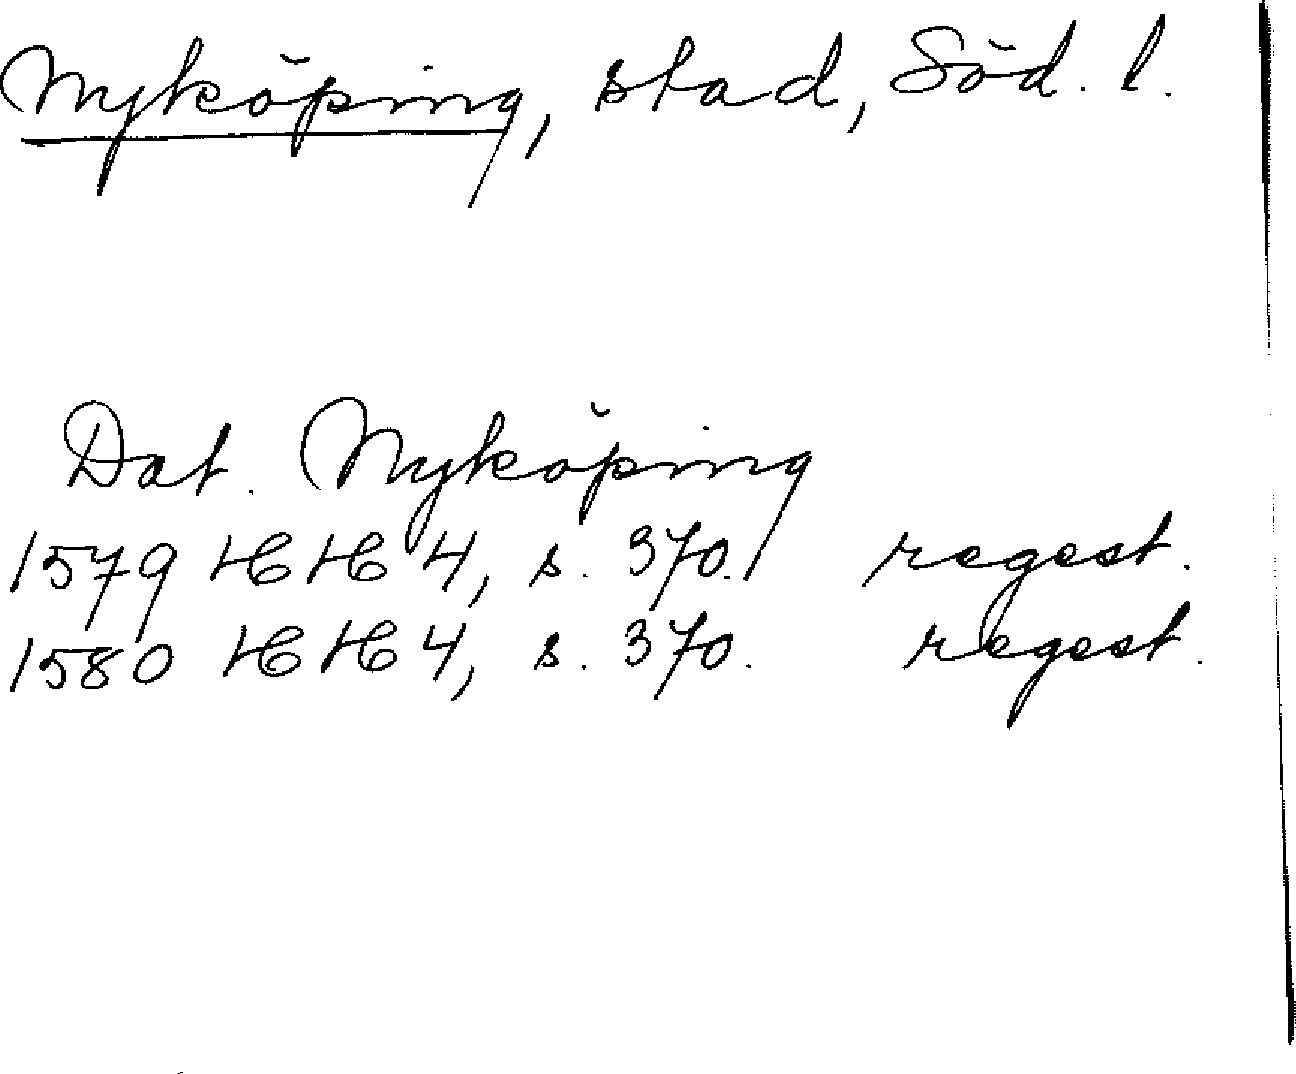 Nyköping, stad, Söd. l.
Dat. Nyköping
1579 HH 4, s. 370. regest.
1580 HH 4, s. 370. regest.